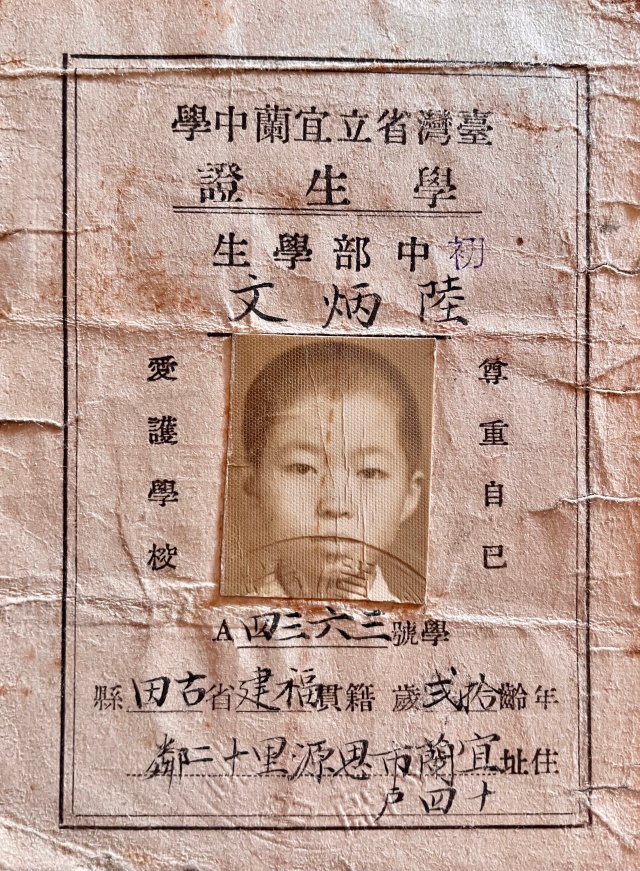 臺灣省立宜蘭中學
學生證
初中部學生
陸炳文
尊重自己
愛護學校
學號三六三四A
年齡拾弍歲 籍貫福建省古田縣
住址宜蘭市思源里十二鄰
十四戶